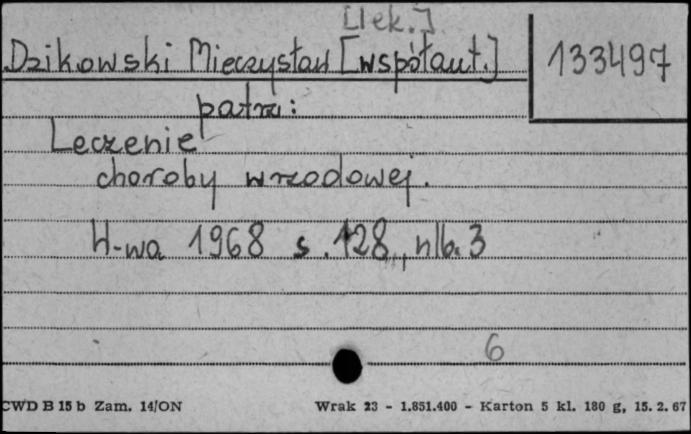 [lek.]
Dzikowski Mieczysław [współaut.]
133497
patrz:
Leczenie
choroby wrzodowej.
W-wa 1968 s. 128, nlb. 3
6
CWD B 15 b Zam. 14/ON
Wrak 23 - 1.851.400 - Karton 5 kl. 180 g, 15. 2. 67